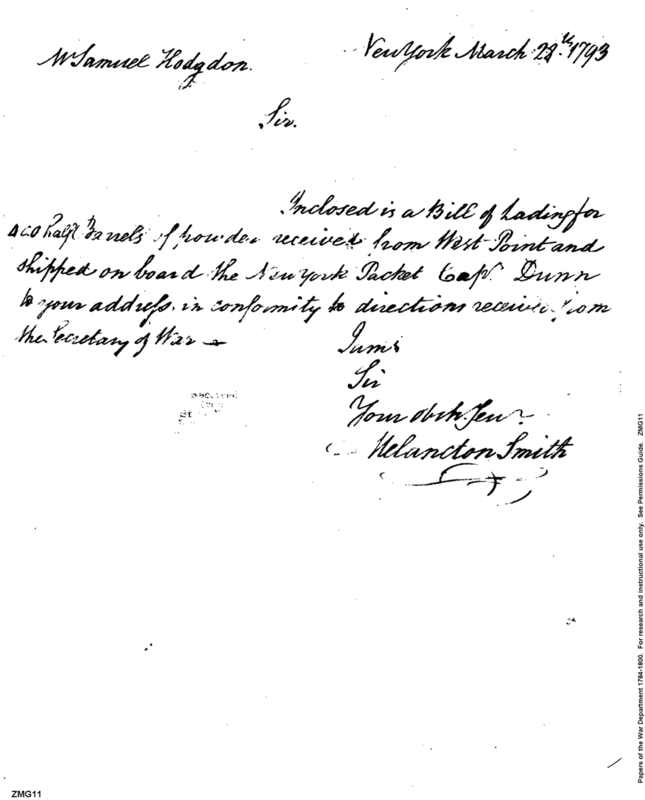 Mr Samuel Hodgdon.
New York March 28th. 1793
Sir.
Inclosed is a Bill of Lading for
400 half Barrels of powder received from West Point and
shipped on board the New York Packet Capt. Dunn
to your address. in conformity to directions received from
the Secretary of War
I am
Sir
Your obdt. Servt.
Melancton Smith
Papers of the War Department 1784-1800. For research and instructional use only. See Permissions Guide. ZMG11
ZMG11